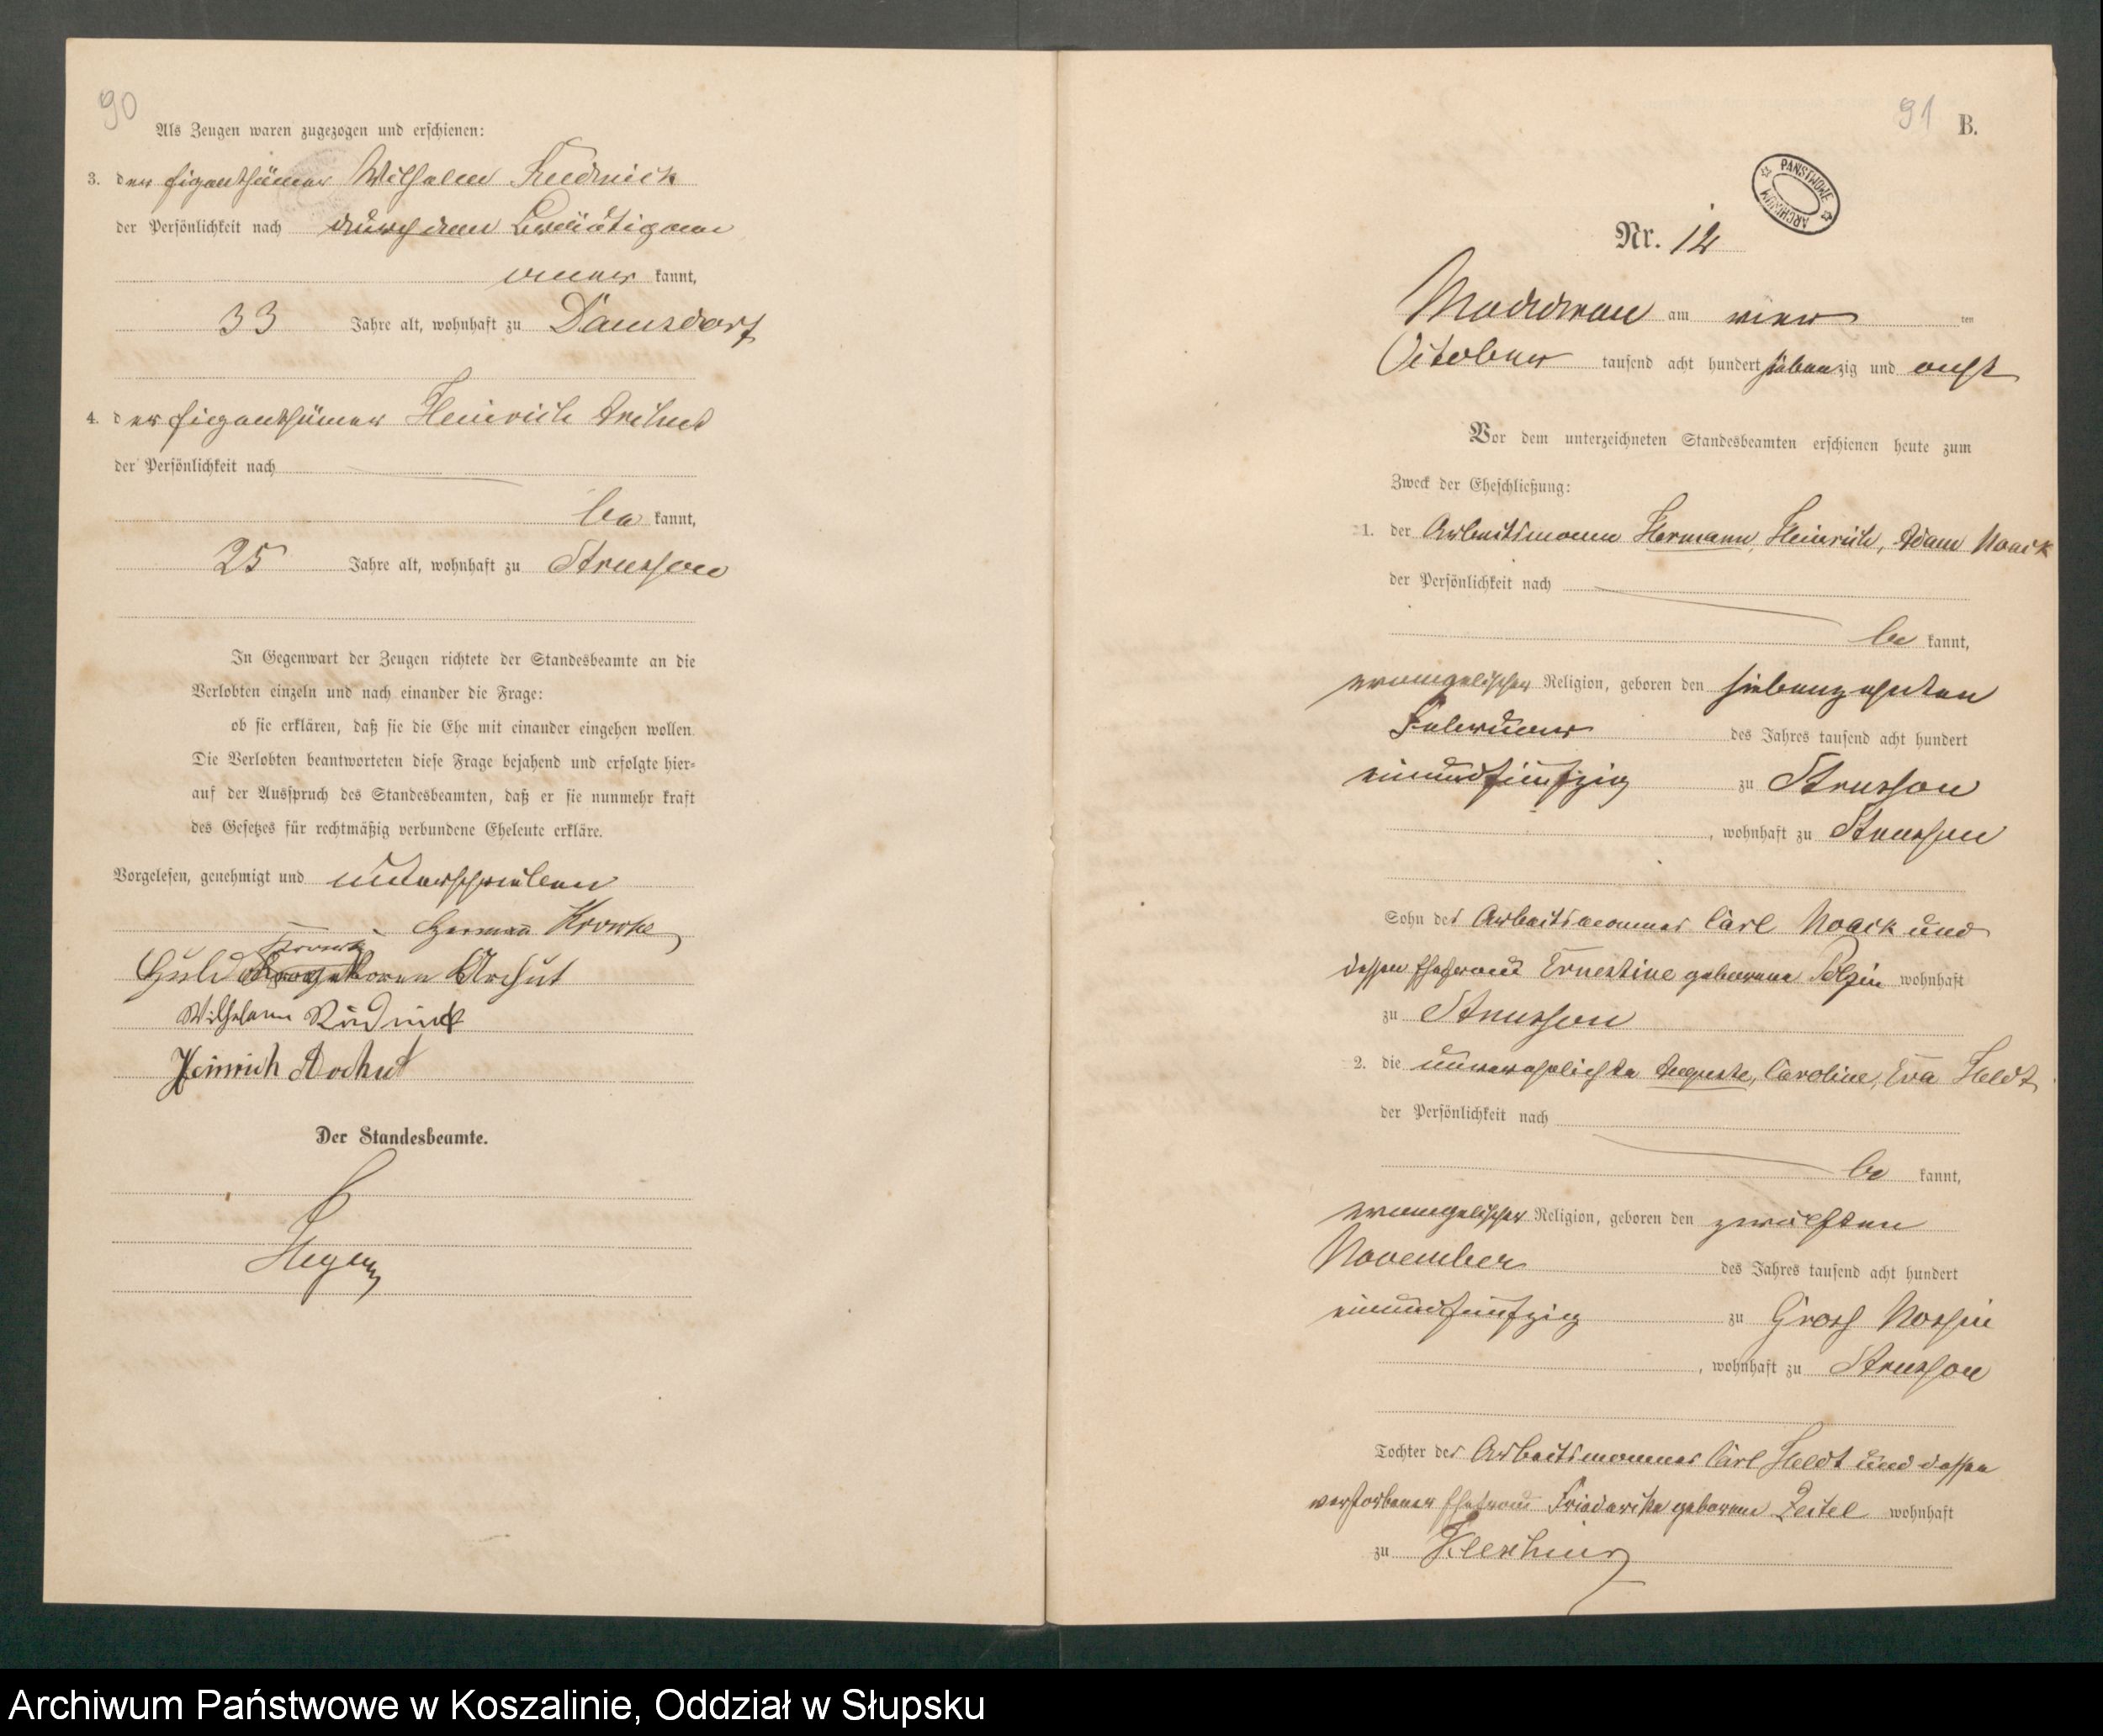 90
Als Zeugen waren zugezogen und erschienen:
3. der Eigenthümer Wilhelm Rudnick
der Persönlichkeit nach durch den Bräutigam
aner kannt,
33 Jahre alt, wohnhaft zu Damsdorf
4. der Eigenthümer Heinrich Archut
der Persönlichkeit nach
be kannt,
25 Jahre alt, wohnhaft zu Strussow
In Gegenwart der Zeugen richtete der Standesbeamte an die
Verlobten einzeln und nach einander die Frage:
ob sie erklären, daß sie die Ehe mit einander eingehen wollen.
Die Verlobten beantworteten diese Frage bejahend und erfolgte hier-
auf der Ausspruch des Standesbeamten, daß er sie nunmehr kraft
des Gesetzes für rechtmäßig verbundene Eheleute erkläre.
Vorgelesen, genehmigt und unterschrieben
Herman
geboren Archut
Wilhelm Rudnick
Heinrich Archut
Der Standesbeamte.
91 B.
PAŃSTWOWE ARCHIWUM
Nr. 12
am vier ten
October tausend acht hundert siebenzig und acht
Vor dem unterzeichneten Standesbeamten erschienen heute zum
Zweck der Eheschließung:
1. der Arbeitsmann Hermann, Heinrich, Adam Noack
der Persönlichkeit nach
be kannt,
evangelischer Religion, geboren den siebenzehnten
Februar des Jahres tausend acht hundert
einundfünfzig zu Strussow
, wohnhaft zu Strussow
Sohn des Arbeitsmannes Carl Noack und
dessen Ehefrau Ernestine geborene Polzin wohnhaft
zu Strussow
2. die unverehelichte Auguste, Caroline, Eva Heldt
der Persönlichkeit nach
be kannt,
evangelischer Religion, geboren den zwölften
November des Jahres tausend acht hundert
einundfünfzig zu Gross Nossin
, wohnhaft zu Strussow
Tochter des Arbeitsmannes Carl Heldt und dessen
verstorbener Ehefrau Friederike geborene Zeitel wohnhaft
zu Kleschinz
Archiwum Państwowe w Koszalinie, Oddział w Słupsku